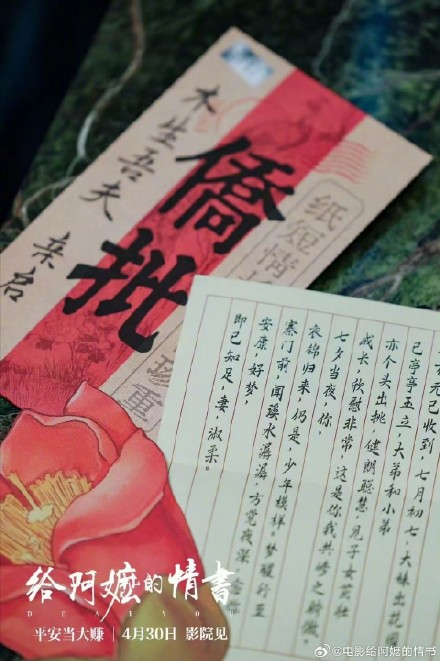 木生吾夫
亲启
僑批
纸短情
珍重
元已收到 七月初七,大妹出花
已亭亭玉立,大弟和小弟
亦个头出挑,健朗聪慧,见子女茁壮
成长,欣慰非常,这是你我共修之骄傲。
七夕当夜,你
衣锦归来,仍是,少年模样。梦醒行至
寨门前,闻溪水潺潺,方觉夜深,
安康,好梦,
即已知足,妻,淑柔。
给阿嬷的情書
DEAR YOU
平安当大赚 | 4月30日 影院见
@电影给阿嬷的情书